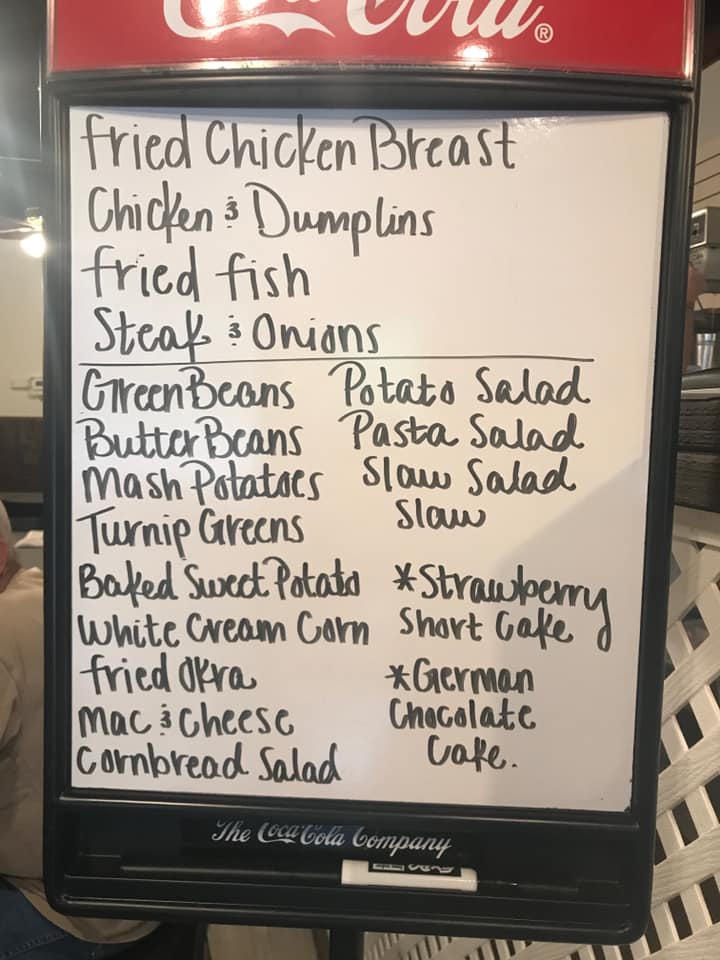 Coca-Cola®
Fried Chicken Breast
Chicken & Dumplins
Fried Fish
Steak & Onions
Green Beans
Butter Beans
Mash Potatoes
Turnip Greens
Baked Sweet Potato
White Cream Corn
Fried Okra
Mac & Cheese
Cornbread Salad
Potato Salad
Pasta Salad
Slaw Salad
Slaw
*Strawberry
Short Cake
*German
Chocolate
Cake.
The Coca-Cola Company